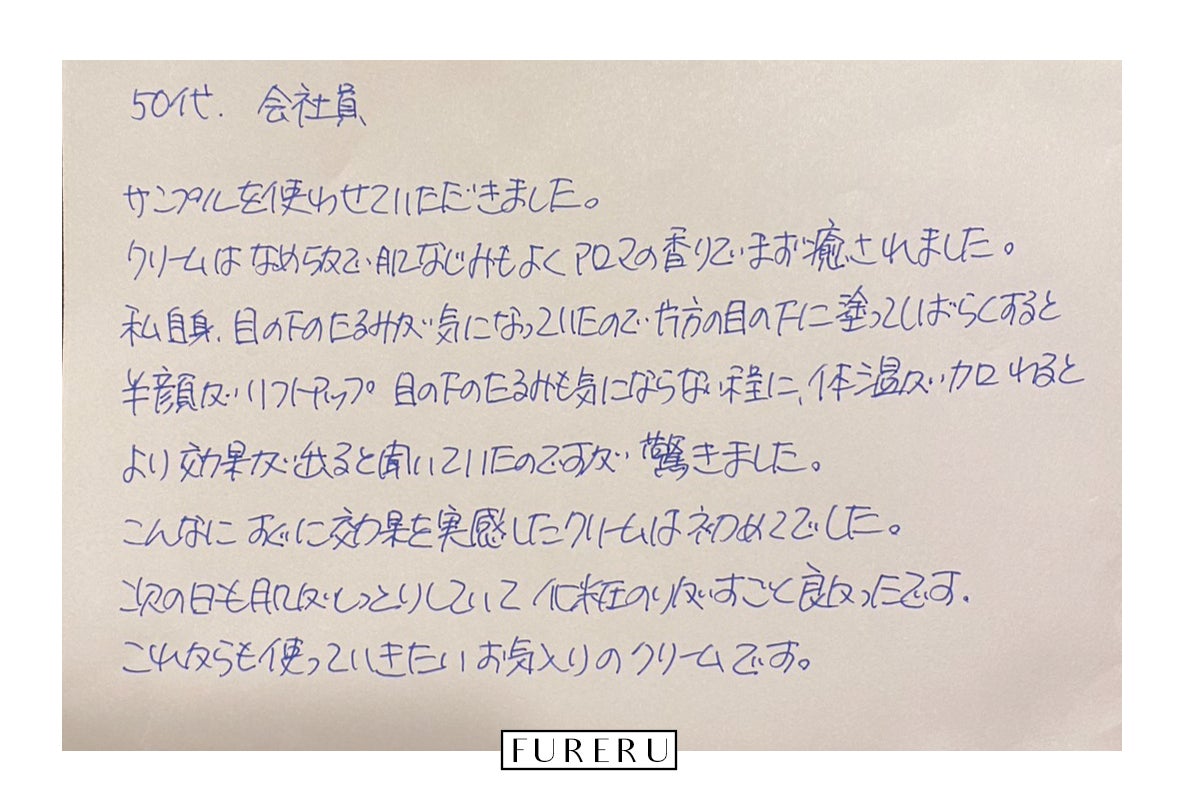 50代. 会社員
サンプルを使わせていただきました。
クリームはなめらかで肌なじみもよくアロマの香りでまず癒されました。
私自身、目の下のたるみが気になっていたので片方の目の下に塗ってしばらくすると
半顔がリフトアップ 目の下のたるみも気にならない程に、体温が加わると
より効果が出ると聞いていたのですが驚きました。
こんなにすぐに効果を実感したクリームは初めてでした。
次の日も肌がしっとりしていて化粧のりがすごく良かったです.
これからも使っていきたいお気入りのクリームです。
FURERU